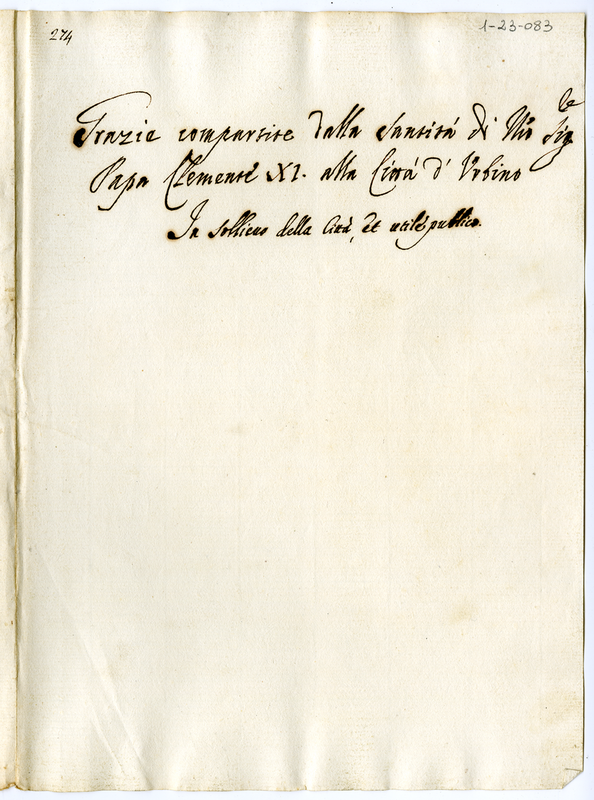 274
1-23-083
Grazie compartite dalla Santità di Nro Sigre
Papa Clemente XI. alla Città d'Urbino
In sollievo della Città, et utile publico.